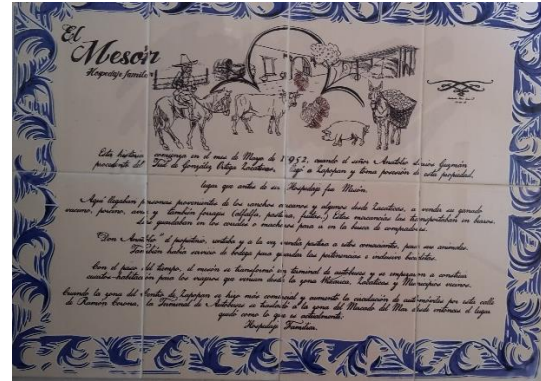 El
Mesón
Hospedaje familiar
Esta historia comienza en el mes de Mayo de 1952, cuando el señor Anatolio Guzmán
procedente del de González Ortega Zacatecas, llegó a Zapopan y toma posesión de esta propiedad.
lugar que antes de ser Hospedaje fue Mesón.
Aquí llegaban personas provenientes de los ranchos cercanos y algunos desde Zacatecas, a vender su ganado
vacuno, porcino, aves y también forrages (alfalfa, pastura, Estas mercancías las transportaban en burros.
las guardaban en los corrales o macheros para ir en la busca de compradores.
"Don Anatolio" el propietario, rentaba y a la vez vendía pastura a estos comerciantes, para sus animales.
También había cuartos de bodega para guardar las pertenencias e inclusive huéspedes.
Con el paso del tiempo, el mesón se transformó en terminal de autobuses y se empezaron a construir
cuartos-habitación, para los viajeros que venían desde la zona Zacatecas y Mexicapan
Cuando la zona del Centro de Zapopan se hizo más comercial y aumentó la circulación de automóviles por esta calle
de Ramón Corona, la Terminal de Autobuses se trasladó a la zona del Mercado del Mar desde entonces el lugar
quedó como lo que es actualmente:
Hospedaje Familiar.